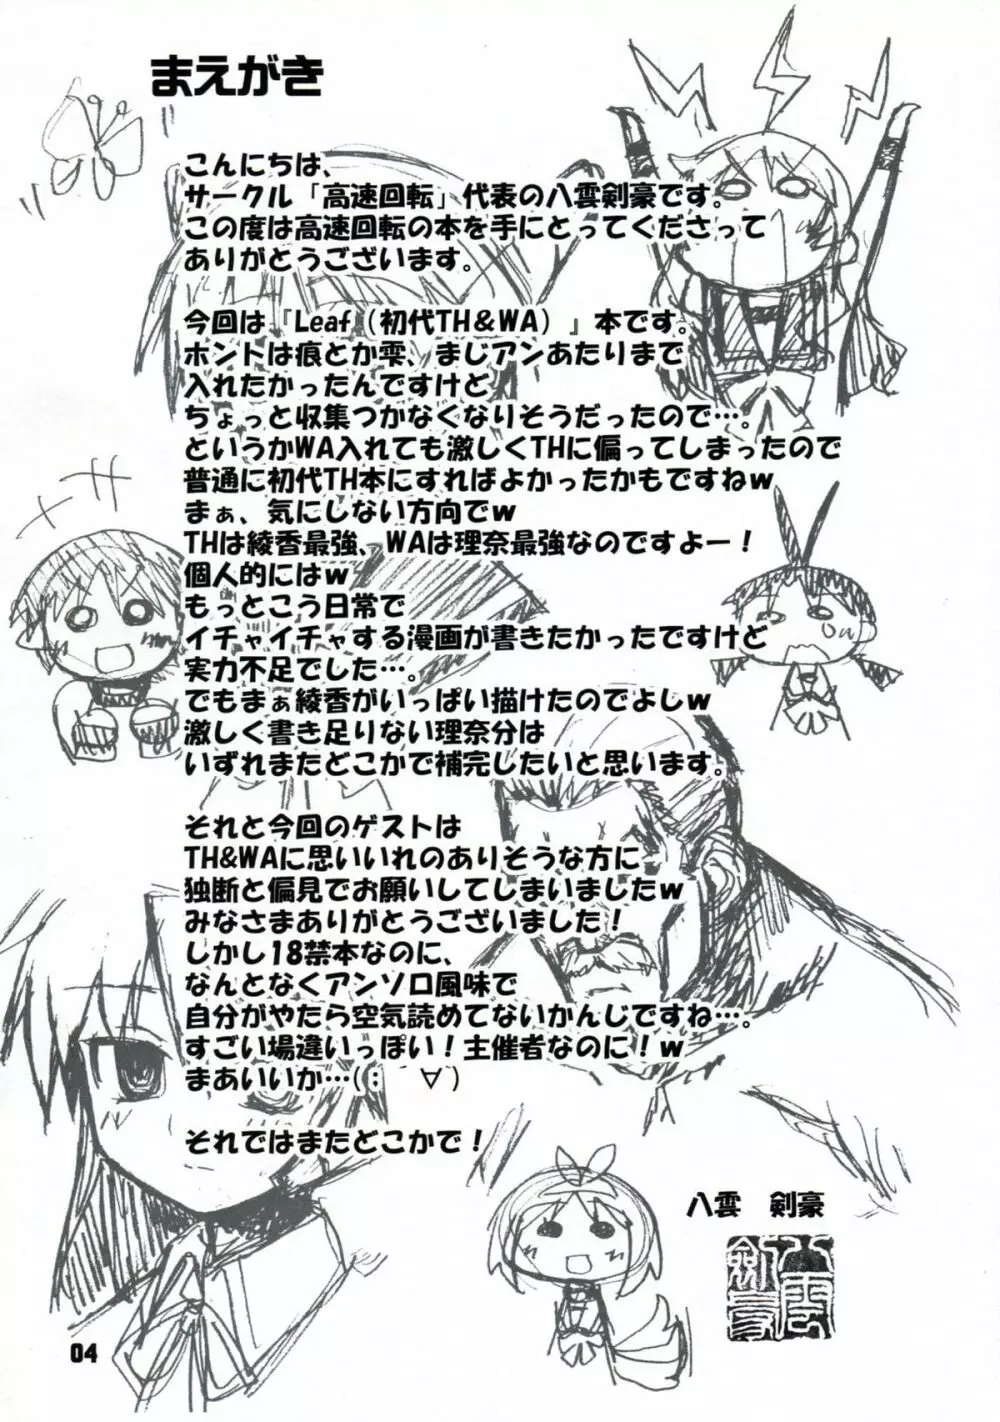 まえがき
こんにちは、
サークル「高速回転」代表の八雲剣豪です。
この度は高速回転の本を手にとってくださって
ありがとうございます。
今回は『Leaf(初代TH&WA)』本です。
ホントは痕とか雫、まじアンあたりまで
入れたかったんですけど
ちょっと収集つかなくなりそうだったので…。
というかWA入れても激しくTHに偏ってしまったので
普通に初代TH本にすればよかったかもですねw
まぁ、気にしない方向でw
THは綾香最強、WAは理奈最強なのですよー!
個人的にはw
もっとこう日常で
イチャイチャする漫画が書きたかったですけど
実力不足でした…。
でもまぁ綾香がいっぱい描けたのでよしw
激しく書き足りない理奈分は
いずれまたどこかで補完したいと思います。
それと今回のゲストは
TH&WAに思いいれのありそうな方に
独断と偏見でお願いしてしまいましたw
みなさまありがとうございました!
しかし18禁本なのに、
なんとなくアンソロ風味で
自分がやたら空気読めてないかんじですね…。
すごい場違いっぽい!主催者なのに!w
まあいいか…(: ゛∀゛)
それではまたどこかで!
八雲 剣豪
八雲
剣豪
04